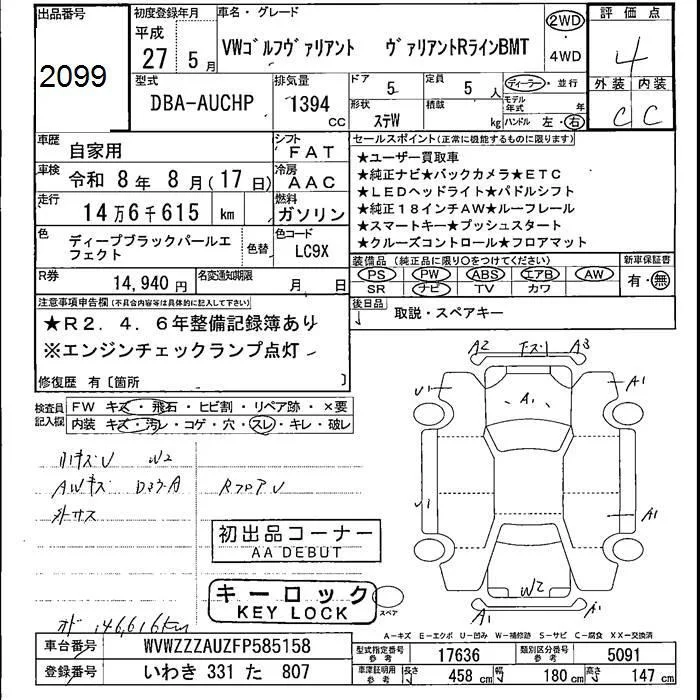 出品番号
2099
初度登録年月
平成
27 5月
車名・グレード
VWゴルフヴァリアント ヴァリアントRラインBMT
2WD
・
4WD
評価点
4
外装 内装
C C
型式
DBA-AUCHP
排気量
1394
CC
ドア
5
定員
5 人
形状
ステW
積載
kg
ディーラー・並行
モデル年式 年
ハンドル 左・右
車歴
自家用
シフト
FAT
車検
令和 8年 8月(17日)
冷房
AAC
走行
14万6千615 km
燃料
ガソリン
色
ディープブラックパールエフェクト
色替
色コード
LC9X
R券
14,940円
名変通知期限
月 日
セールスポイント(正常に機能するものに限ります)
★ユーザー買取車
★純正ナビ★バックカメラ★ETC
★LEDヘッドライト★パドルシフト
★純正18インチAW★ルーフレール
★スマートキー★プッシュスタート
★クルーズコントロール★フロアマット
装備品(純正品に限り○をつけてください)
PS PW ABS エアB AW
SR ナビ TV カワ
新車保証書
有・無
後日品
取説・スペアキー
注意事項申告欄(不具合内容等は具体的に記入して下さい)
★R2.4.6年整備記録簿あり
※エンジンチェックランプ点灯
修復歴 有〔箇所 〕
検査員記入欄
FW キズ・飛石・ヒビ割・リペア跡・×要
内装 キズ・汚レ・コゲ・穴・スレ・キレ・破レ
小キズU W2
AWキズ
RフロアU
外サス
初出品コーナー
AA DEBUT
キーロック
KEY LOCK
スペア
146,616km
A2 A3
U1 A1 A1
U1 A1
W2
A1 A1
A-キズ E-エクボ U-凹み W-補修跡 S-サビ C-腐食 XX-交換済
車台番号
WVWZZZAUZFP585158
登録番号
いわき 331 た 807
型式指定番号
参考
17636
類別区分番号
参考
5091
車庫証明用
参考
長さ
458 cm
幅
180 cm
高さ
147 cm